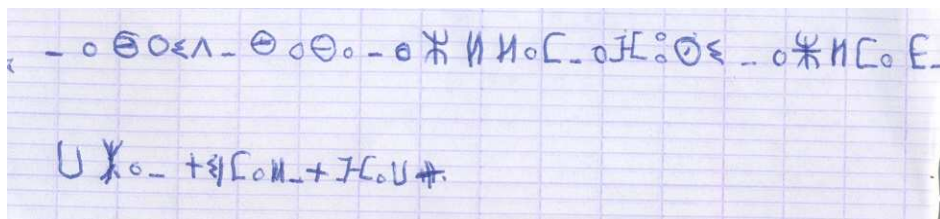 - ⴰⴱⵔⵉⴷ - ⴱⴰⴱⴰ - ⴰⵣⵍⵍⴰⵎ - ⴰⴼⵓⵙⵉ - ⴰⵣⵍⵎⴰⴹ -
ⵜⵉⵎⴰⵍ - ⵜⴼⴰⵡⵜ.